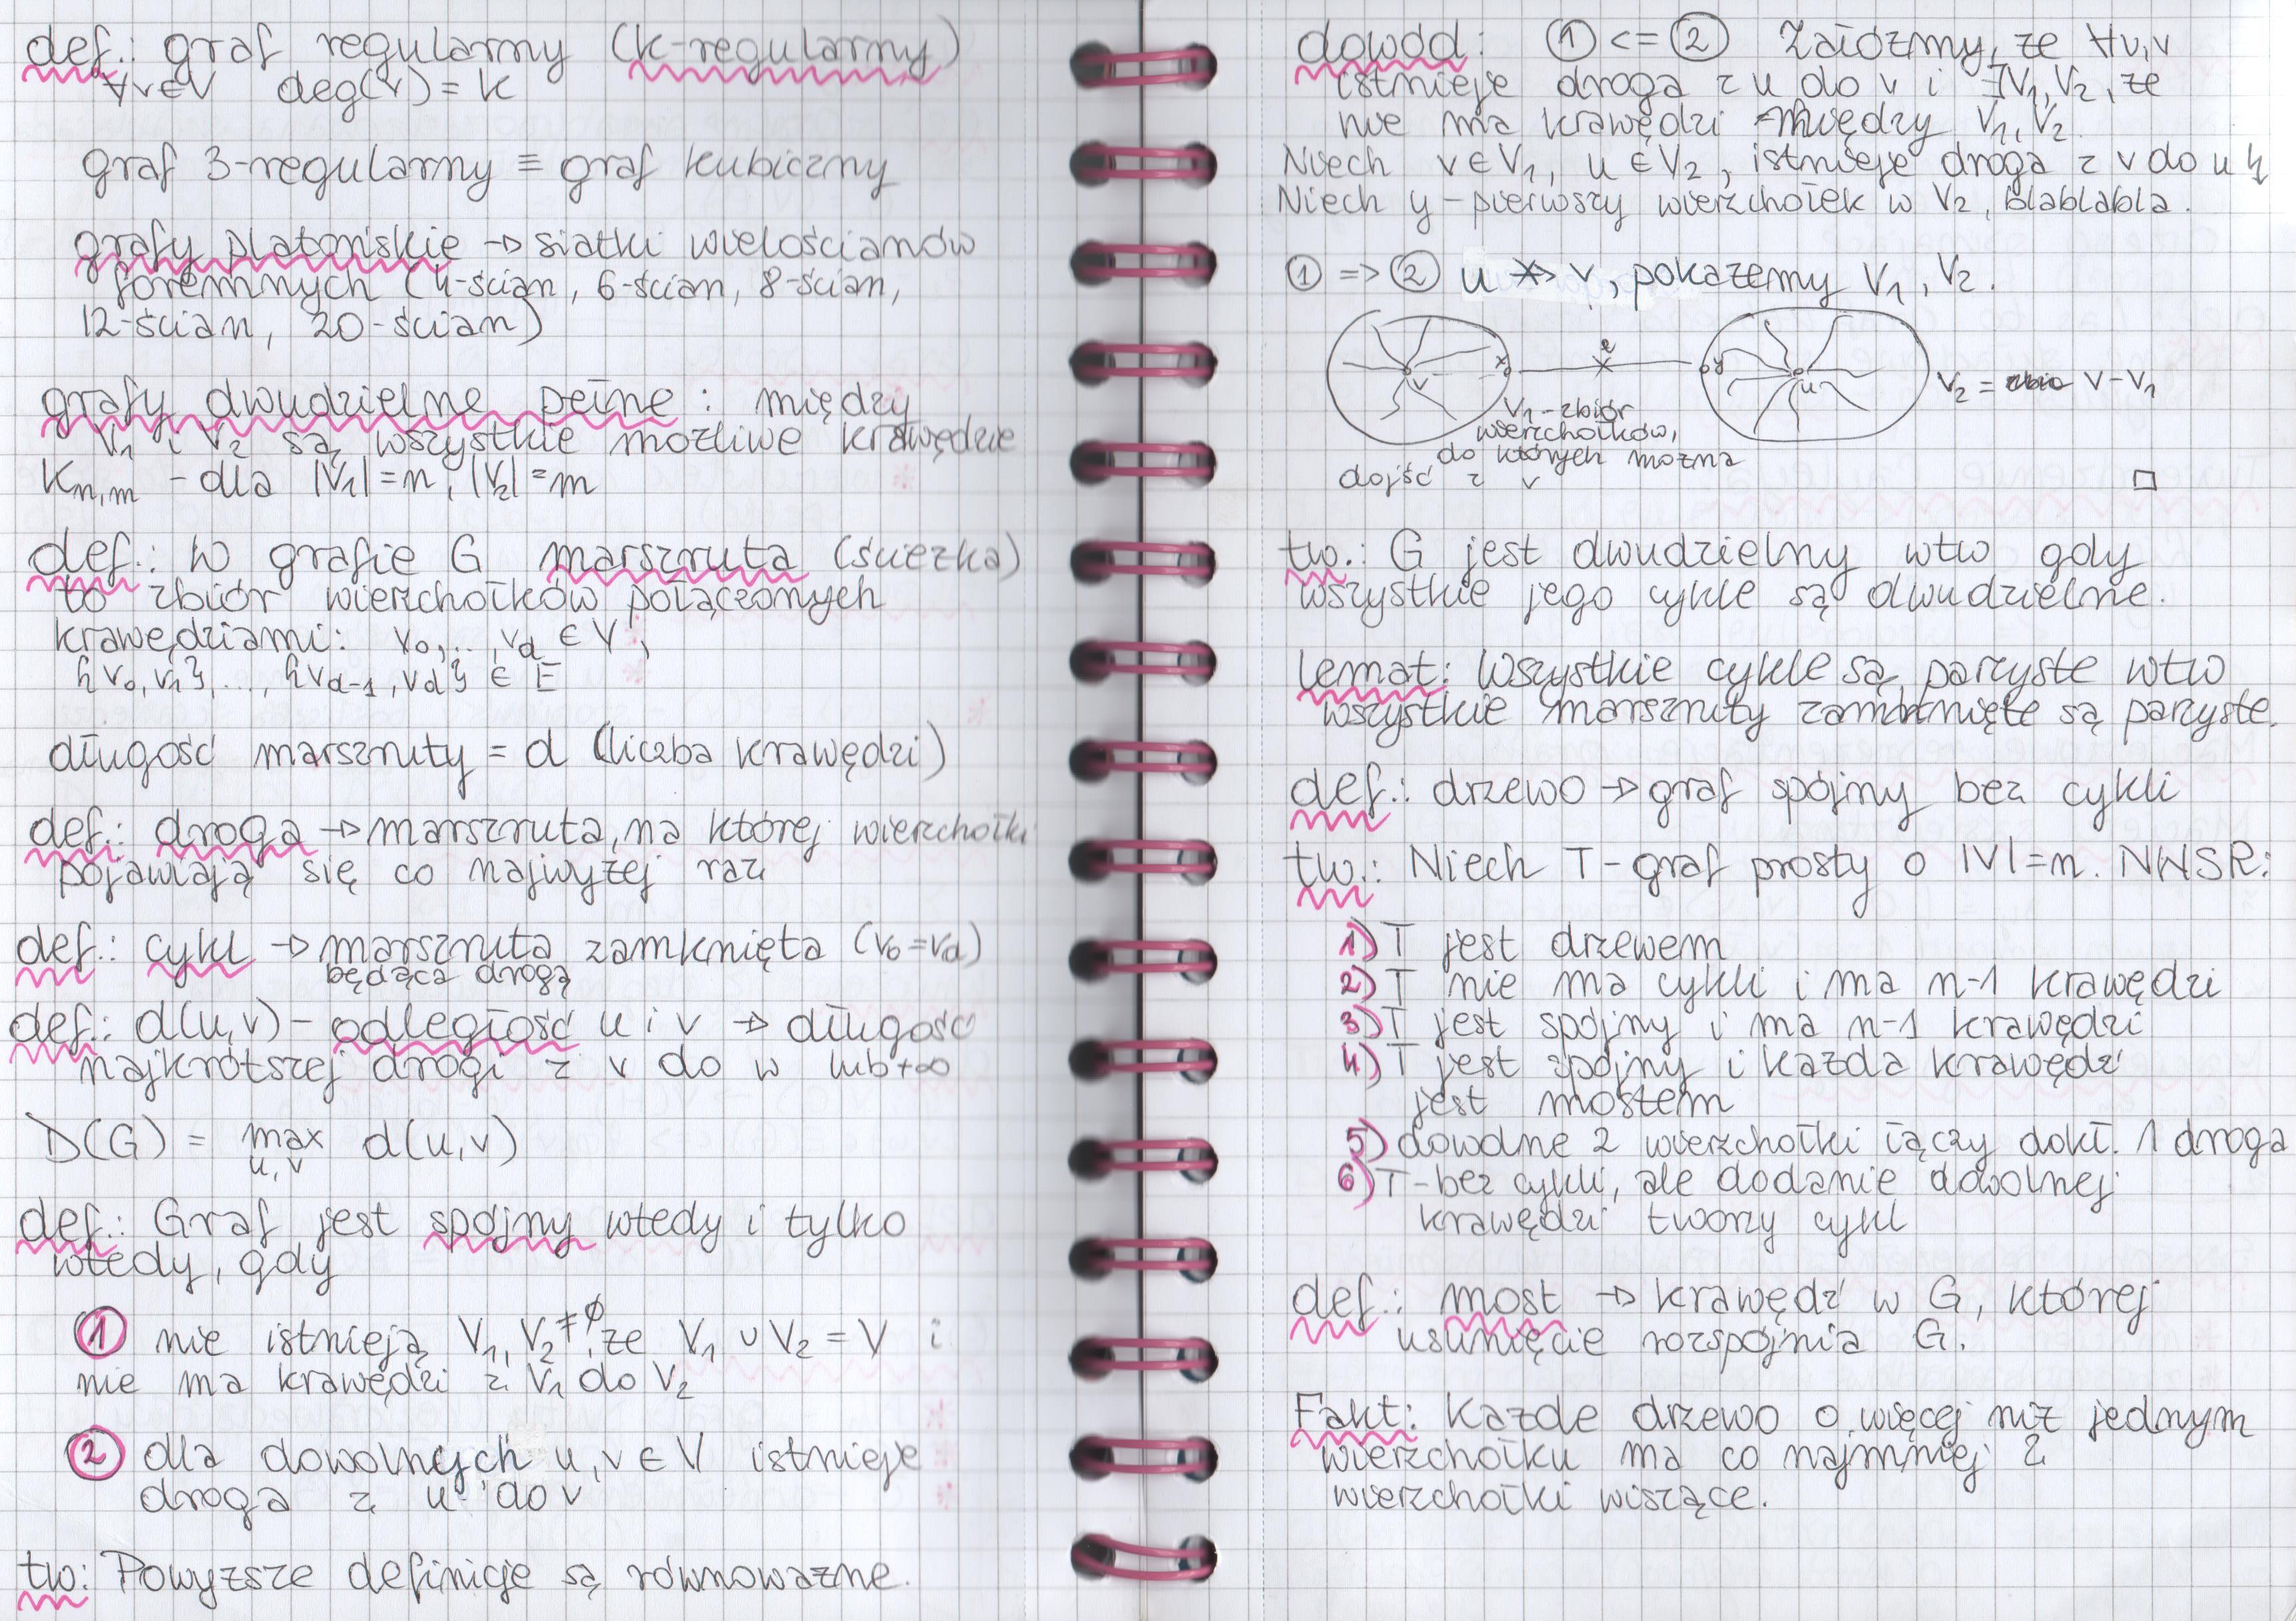 def.: graf regularny (k-regularny)
∀v∈V deg(v) = k
graf 3-regularny ≡ graf kubiczny
grafy platońskie → siatki wielościanów
foremnych (4-ścian, 6-ścian, 8-ścian,
12-ścian, 20-ścian)
grafy dwudzielne pełne: między
V₁ i V₂ są wszystkie możliwe krawędzie
Kn,m - dla |V₁| = n, |V₂| = m
def.: W grafie G marszruta (ścieżka)
to zbiór wierzchołków połączonych
krawędziami: v₀,..., vd ∈ V,
{v₀, v₁}, ..., {vd-1, vd} ∈ E
długość marszruty = d (liczba krawędzi)
def.: droga → marszruta, na której wierzchołki
pojawiają się co najwyżej raz
def.: cykl → marszruta zamknięta (v₀ = vd)
będąca drogą
def.: d(u,v) - odległość u i v → długość
najkrótszej drogi z v do w lub +∞
D(G) = max d(u,v)
u,v
def.: Graf jest spójny wtedy i tylko
wtedy, gdy
① nie istnieją V₁, V₂ ≠ ∅, że V₁ ∪ V₂ = V i
nie ma krawędzi z V₁ do V₂
② dla dowolnych u,v ∈ V istnieje
droga z u do v
tw: Powyższe definicje są równoważne.
dowód: ① <= ② Załóżmy, że ∀u,v
istnieje droga z u do v i ∃V₁,V₂, że
nie ma krawędzi między V₁,V₂.
Niech v ∈ V₁, u ∈ V₂, istnieje droga z v do u ↯
Niech y - pierwszy wierzchołek w V₂, blablabla.
① => ② u ↛ v, pokażemy V₁, V₂.
v x e y u
V₂ = V - V₁
V₁ - zbiór
wierzchołków,
do których można
dojść z v □
tw.: G jest dwudzielny wtw gdy
wszystkie jego cykle są dwudzielne.
lemat: Wszystkie cykle są parzyste wtw
wszystkie marszruty zamknięte są parzyste.
def.: drzewo → graf spójny bez cykli
tw.: Niech T - graf prosty o |V| = n. NWSR:
1) T jest drzewem
2) T nie ma cykli i ma n-1 krawędzi
3) T jest spójny i ma n-1 krawędzi
4) T jest spójny i każda krawędź
jest mostem
5) dowolne 2 wierzchołki łączy dokł. 1 droga
6) T - bez cykli, ale dodanie dowolnej
krawędzi tworzy cykl
def.: most → krawędź w G, której
usunięcie rozspójnia G.
Fakt: Każde drzewo o więcej niż jednym
wierzchołku ma co najmniej 2
wierzchołki wiszące.